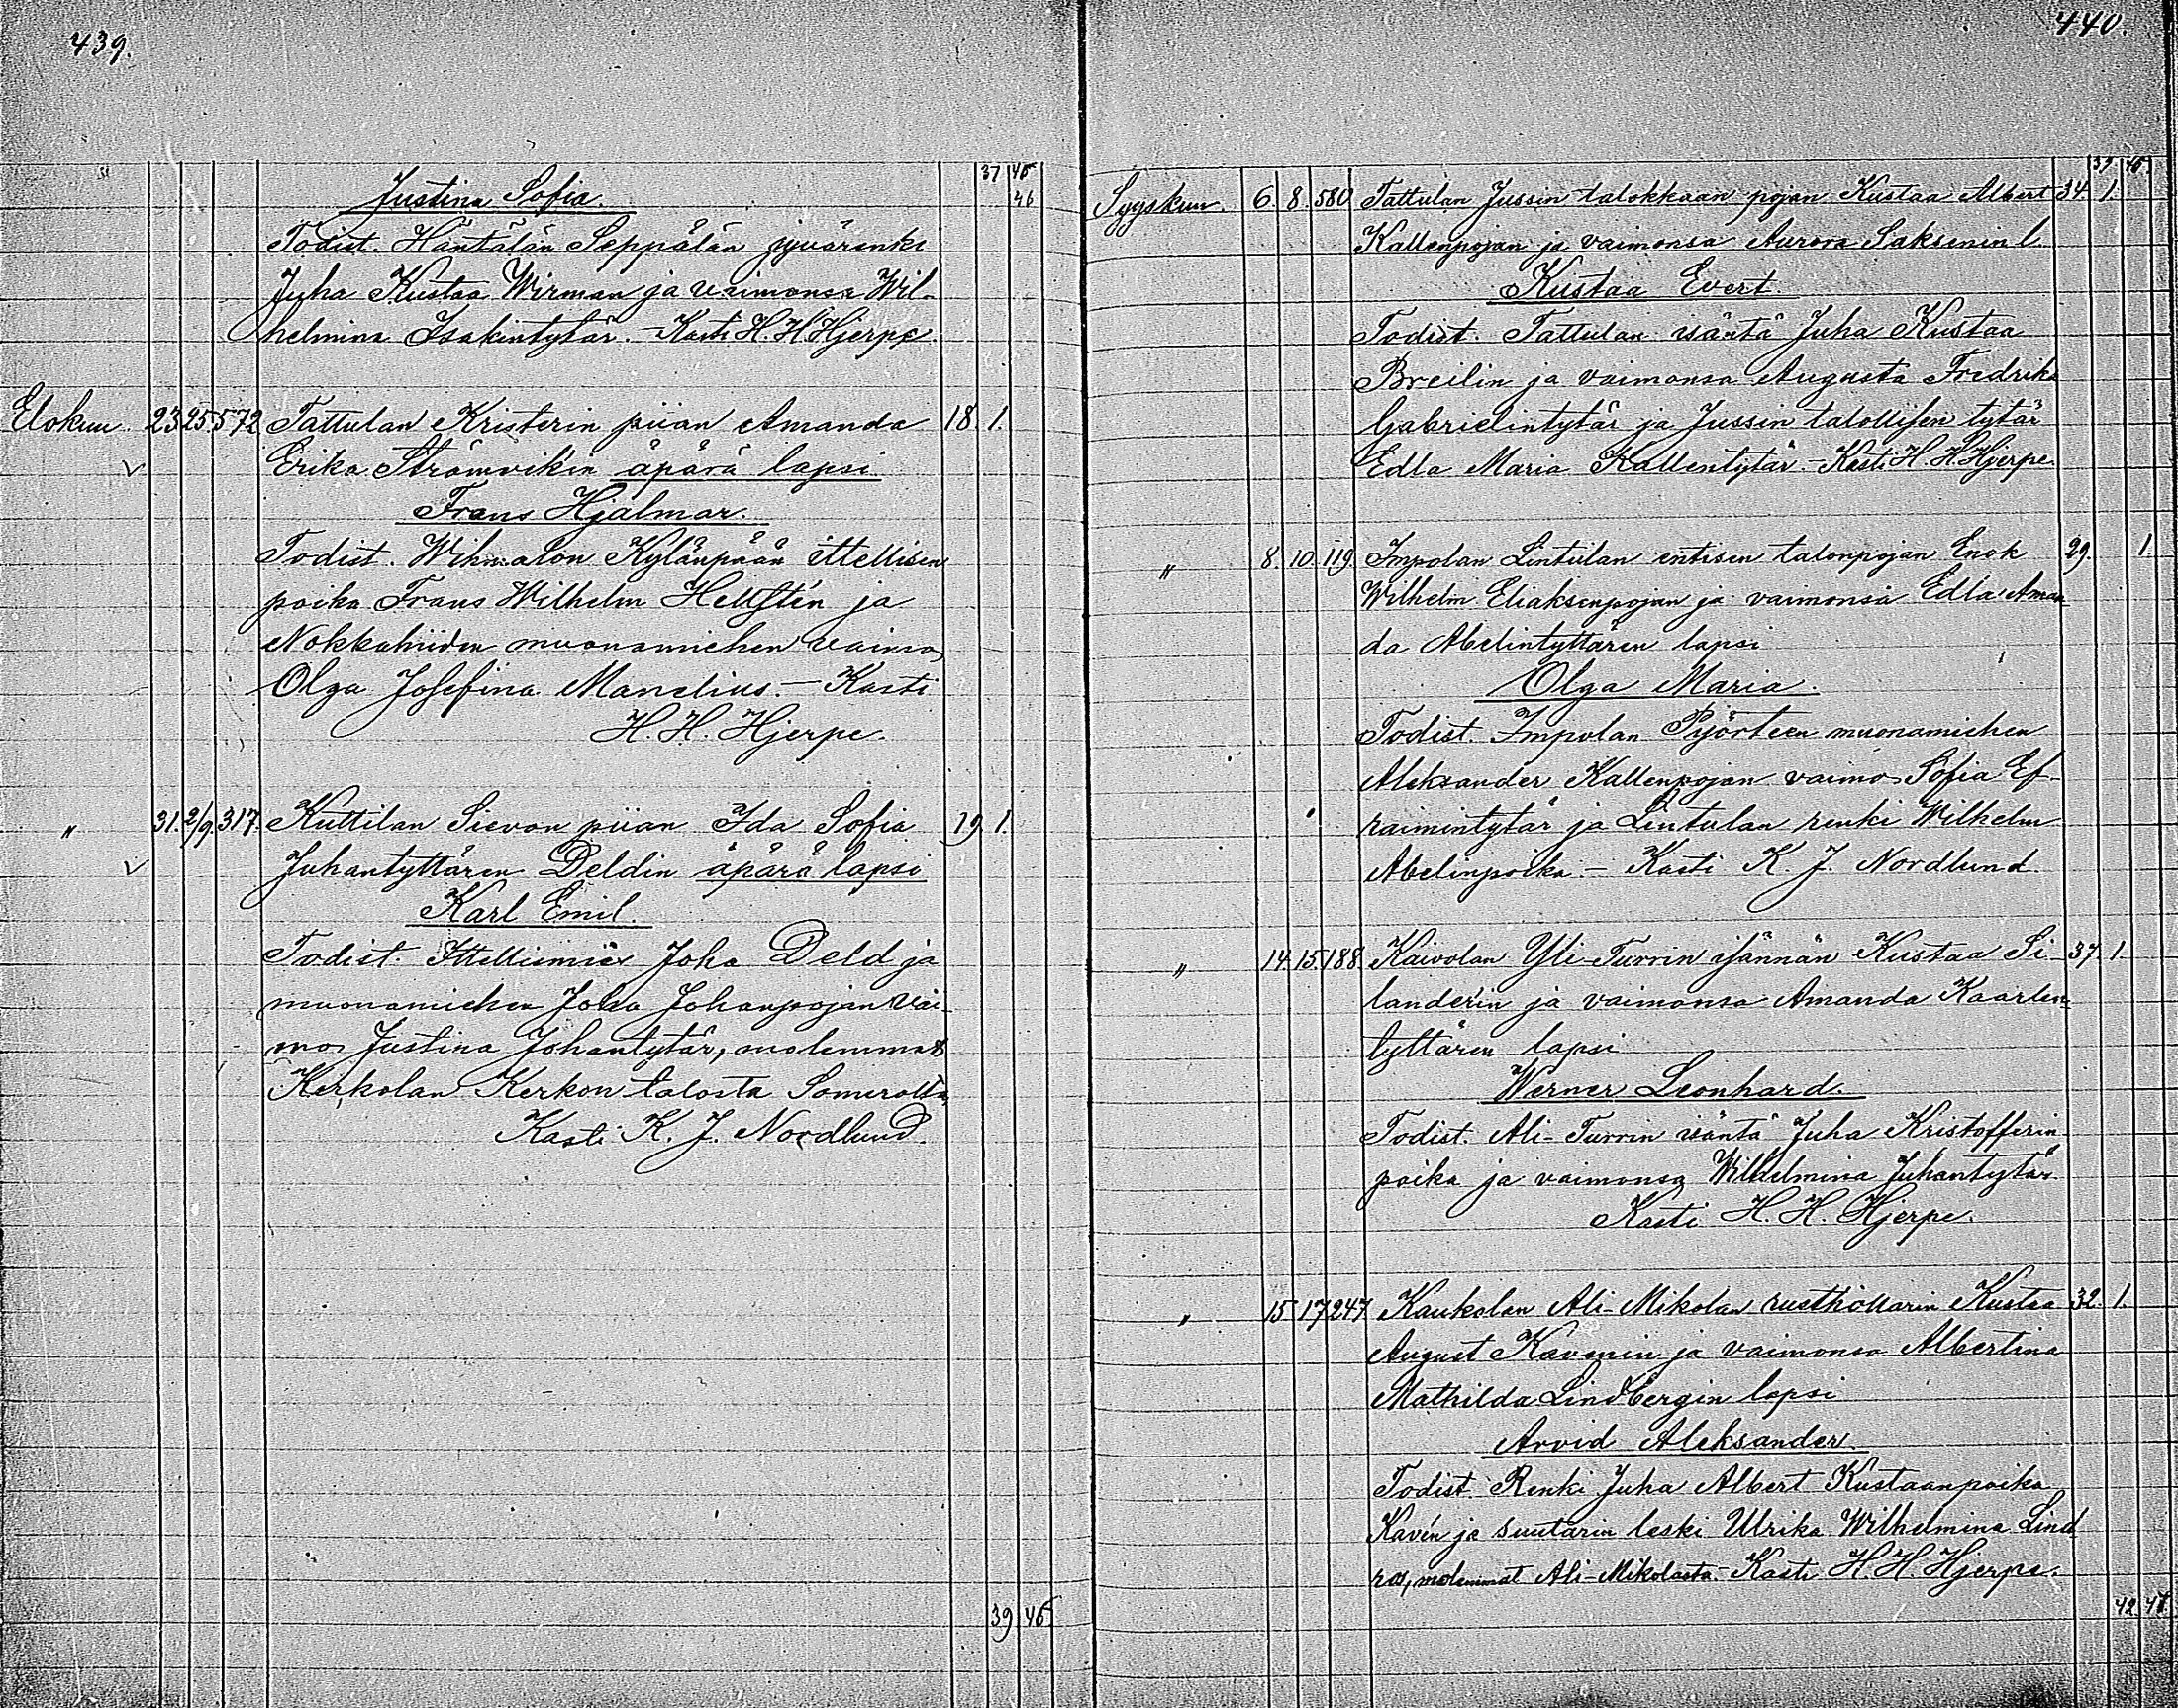 439.
37 45
Justina Sofia. 46
Todist. Häntälän Seppälän jyvärenki
Juha Kustaa Wirman ja vaimonsa Wil-
helmina Isakintytär. – Kasti H. H. Hjerpe.
Elokuu. 23 25. 572 Tattulan Kristerin piian Amanda 18. 1.
Erika Strömvikin äpärä lapsi
Frans Hjalmar.
Todist. Kylänpään ittellisen
poika Frans Wilhelm Hellstén ja
muonamiehen vaimo
Olga Josefina Manelius. – Kasti
H. H. Hjerpe.
" 31. 2/9. 317. Kuttilan Sievon piian Ida Sofia 19. 1.
Juhantyttären Deldin äpärä lapsi
Karl Emil.
Todist. Ittellismies Joha Deld ja
muonamiehen Joha Johanpojan vai-
mo Justina Johantytär, molemmat
Kerkolan Kerkon talosta Somerolta,
Kasti K. J. Nordlund.
39 46
440.
39. 46.
Syyskuu. 6. 8. 580 Tattulan Jussin talokkaan pojan Kustaa Albert 34. 1.
Kallenpojan ja vaimonsa Aurora Saksenin l.
Kustaa Evert.
Todist. Tattulan isäntä Juha Kustaa
Breilin ja vaimonsa Augusta Fredrika
Gabrielintytär ja Jussin talollisen tytär
Edla Maria Kallentytär. – Kasti H. H. Hjerpe.
" 8. 10. 119. Impolan Lintulan entisen talonpojan Enok 29. 1
Wilhelm Eliaksenpojan ja vaimonsa Edla Aman-
da Abelintyttären lapsi
Olga Maria.
Todist. Impolan Pyörteen muonamiehen
Aleksander Kallenpojan vaimo Sofia Ef-
raimintytär ja Lintulan renki Wilhelm
Abelinpoika. – Kasti K. J. Nordlund.
" 14. 15. 188. Kaivolan Yli-Turrin isännän Kustaa Si- 37. 1
landerin ja vaimonsa Amanda Kaarlen-
tyttären lapsi
Werner Leonhard.
Todist. Ali-Turrin isäntä Juha Kristofferin-
poika ja vaimonsa Wilhelmina Juhantytär.
Kasti H. H. Hjerpe.
" 15 17 247 Kaukolan Ali-Mikolan rusthollarin Kustaa 32. 1.
August Kavenin ja vaimonsa Albertina
Mathilda Lindbergin lapsi
Arvid Aleksander.
Todist. Renki Juha Albert Kustaanpoika
Kavén ja suutarin leski Ulrika Wilhelmina Lind
ros, molemmat Ali-Mikolasta. – Kasti H. H. Hjerpe.
42 47.